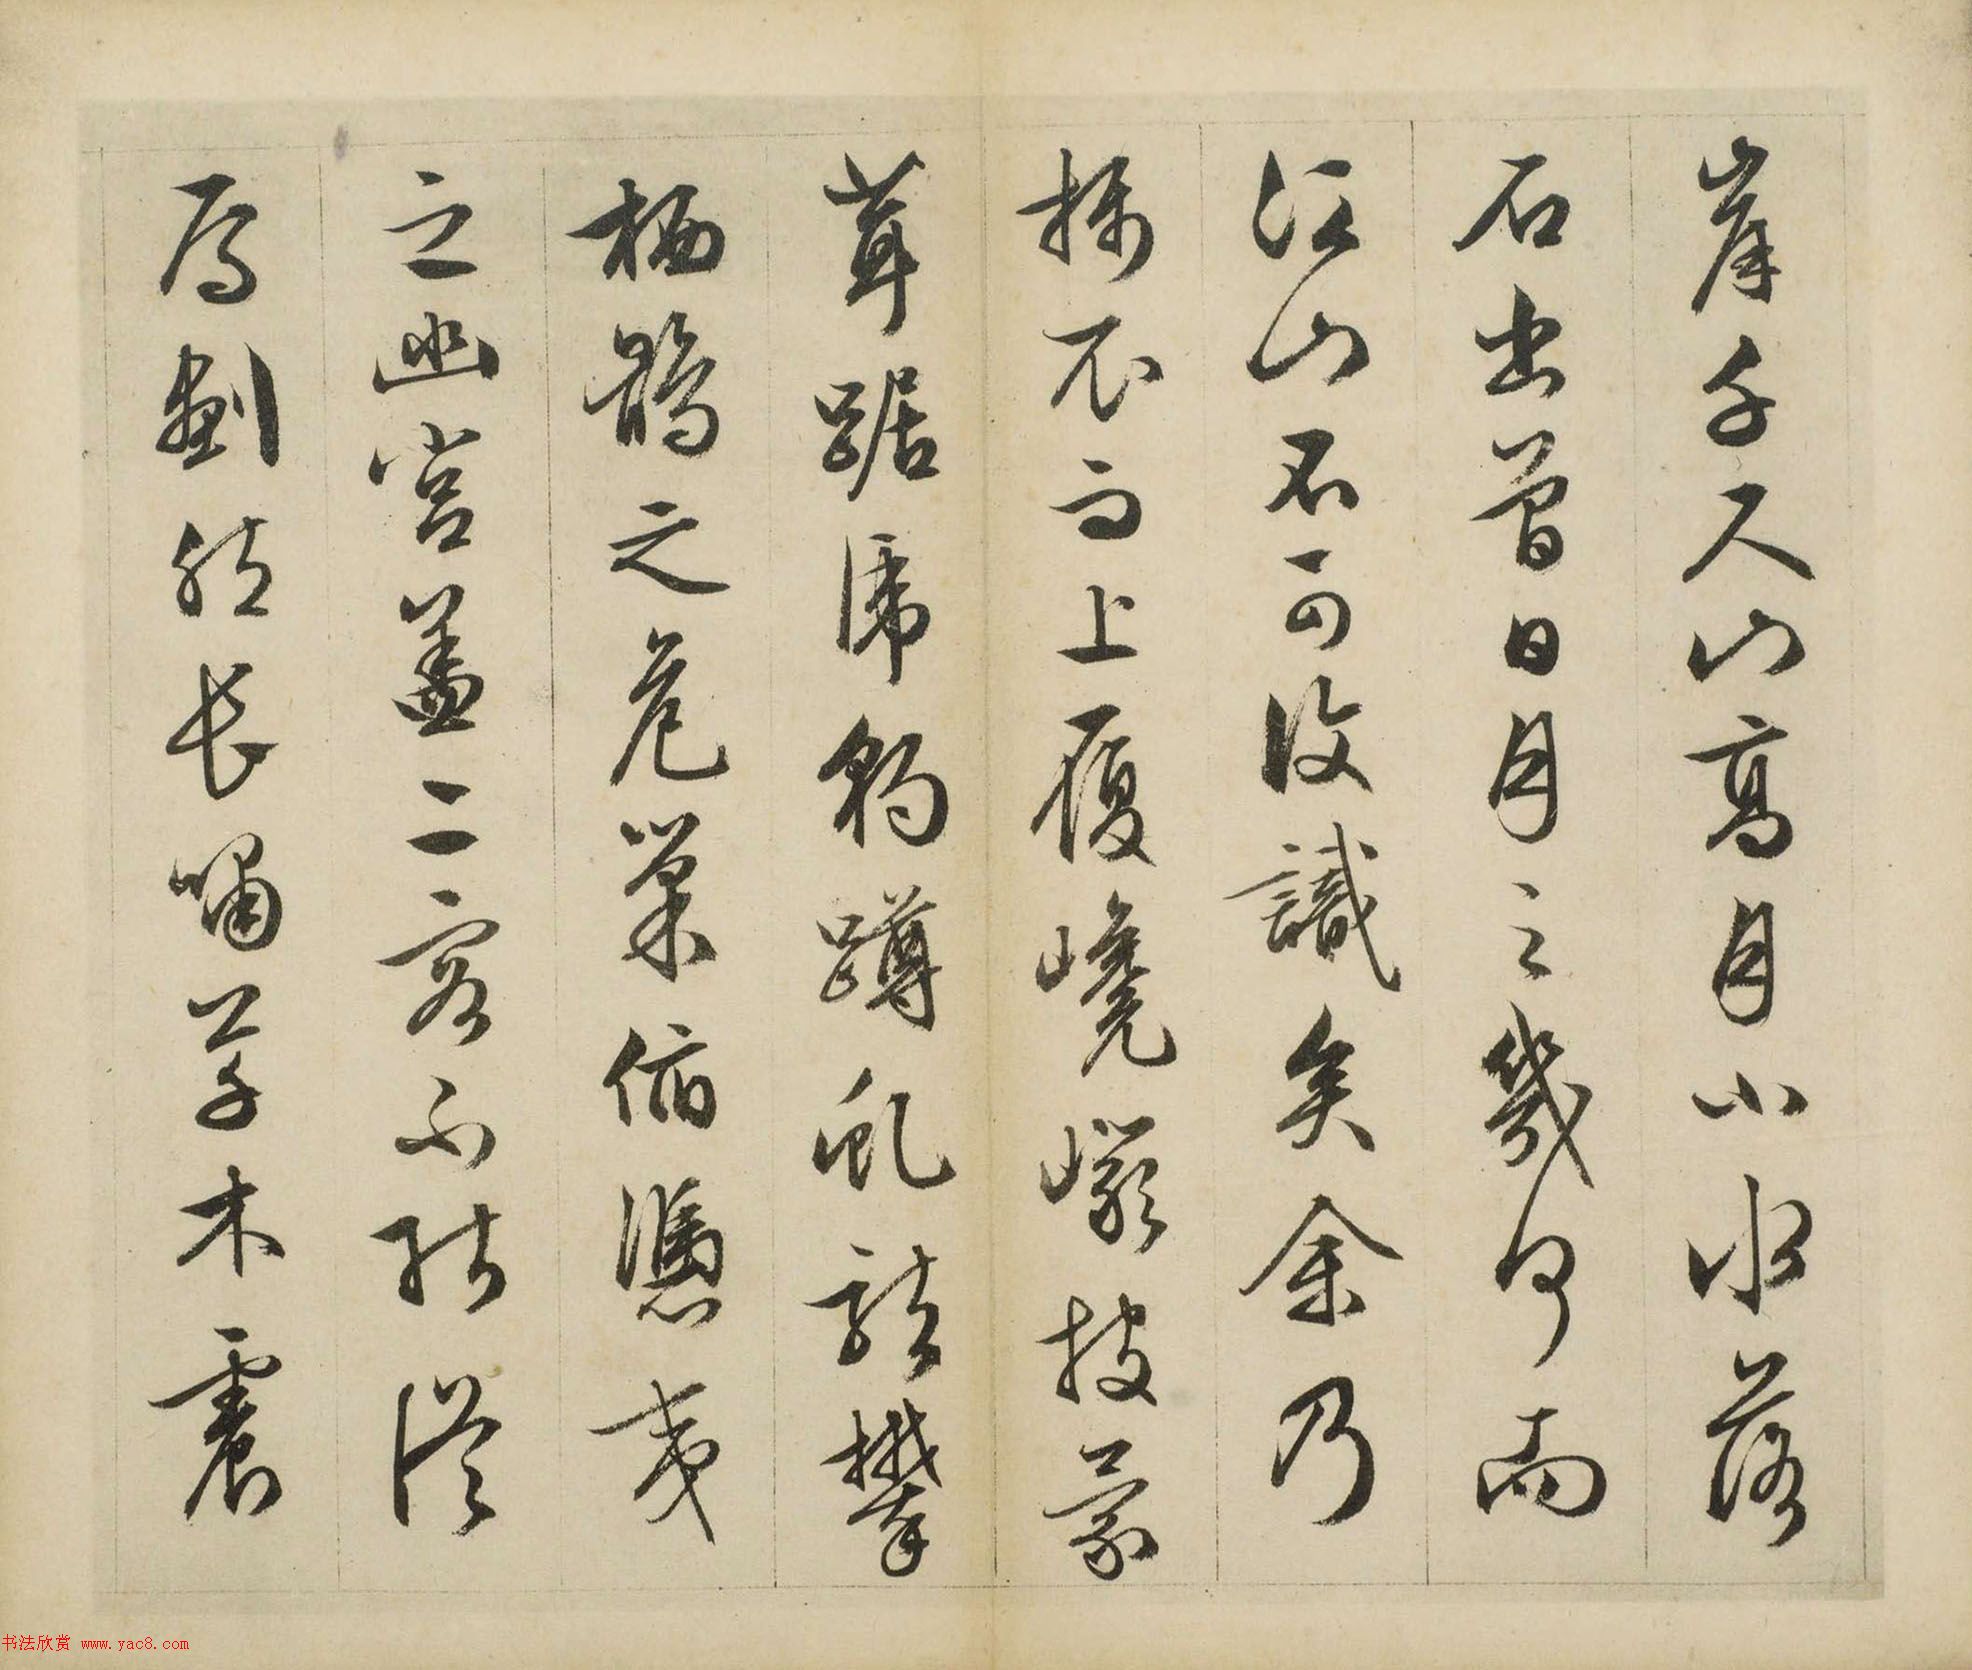 岸千尺山高月小水落
石出曾日月之幾何而
江山不可復識矣余乃
攝衣而上履巉巖披蒙
茸踞虎豹蹲虬龍攀
栖鶻之危巢俯憑夷
之幽宮蓋二客不能從
焉劃然長嘯草木震
书法欣赏 www.yac8.com